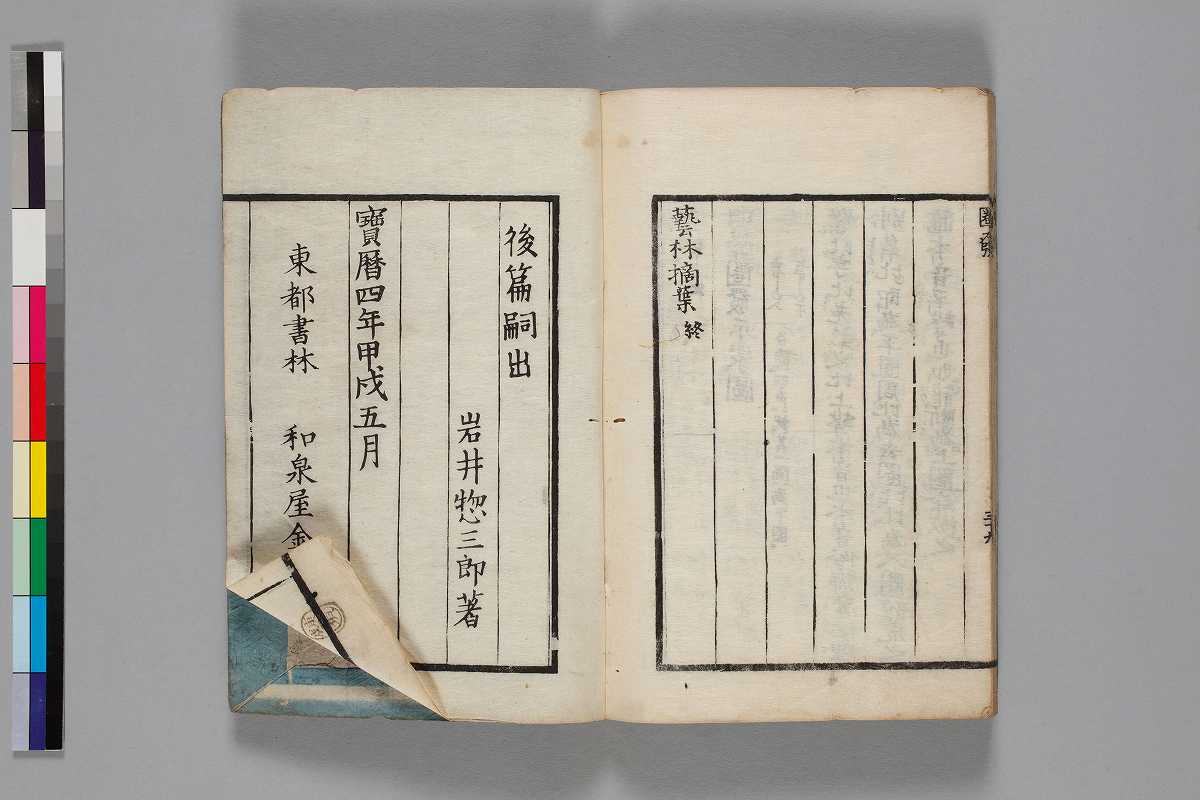 藝林摘葉終
後篇嗣出
岩井惣三郎著
寶曆四年甲戌五月
東都書林 和泉屋金